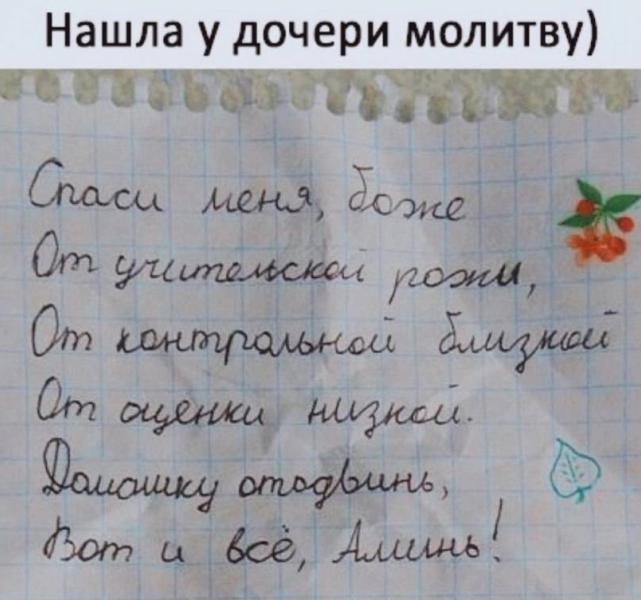 Нашла у дочери молитву)
Спаси меня, боже
От учительской рожи,
От контрольной близкой
От оценки низкой.
Домашку отодвинь,
Вот и всё, Аминь!